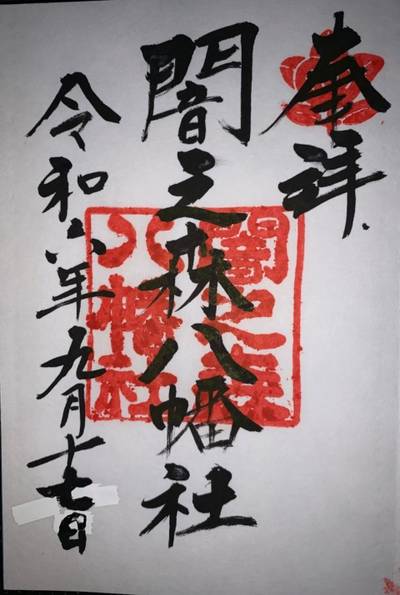 奉拝
闇之森八幡社
令和六年九月十七日
闇之森
八幡社